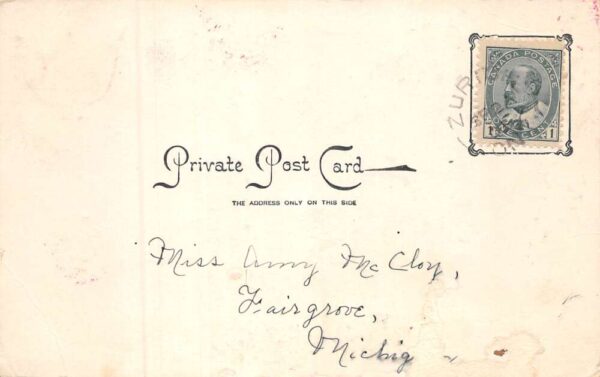 CANADA POSTAGE
ONE CENT
1 1
ZUR
ON
Private Post Card
THE ADDRESS ONLY ON THIS SIDE
Miss Amy McCloy,
Fairgrove,
Michig